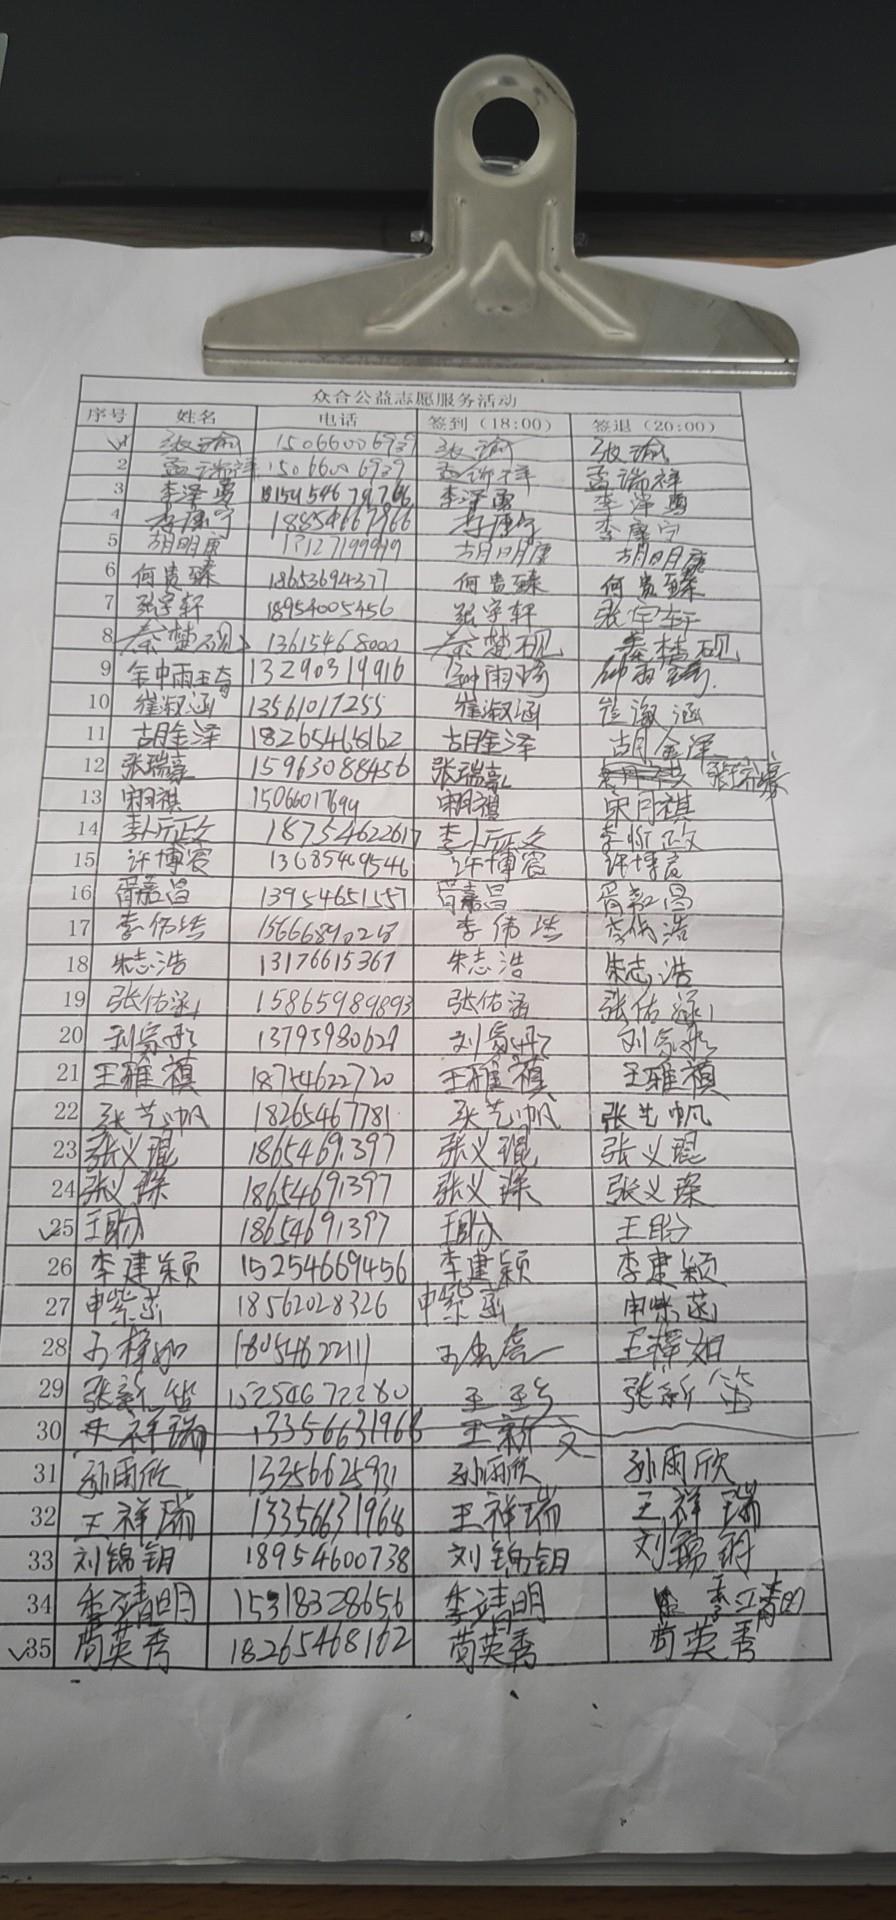 众合公益志愿服务活动
序号 姓名 电话 签到（18:00） 签退（20:00）
1 张瑜 15066006939 张瑜 张瑜
2 孟瑞祥 15066006939 孟瑞祥
3 李泽勇 李泽勇 李泽勇
4 李康宁 18854667966 李康宁 李康宁
5 胡明康 胡明康 胡明康
6 何贵臻 18653694377 何贵臻 何贵臻
7 张宇轩 18954005456 张宇轩 张宇轩
8 秦楚砚 13615468000 秦楚砚 秦楚砚
9 13290319916
10 崔淑涵 13561017255 崔淑涵 崔淑涵
11 胡金泽 18265468162 胡金泽 胡金泽
12 张瑞豪 15963088456 张瑞豪 张瑞豪
13 宋羽祺 宋羽祺
14 18754622617
15 许博宸 13685469546 许博宸 许博宸
16 胥嘉昌 13954651557 胥嘉昌 胥嘉昌
17 李伟浩 李伟浩 李伟浩
18 朱志浩 13176615367 朱志浩 朱志浩
19 张佑涵 15865989893 张佑涵 张佑涵
20 刘家彤 13795980629 刘家彤 刘家彤
21 王雅禛 18754622720 王雅禛 王雅禛
22 张艺帆 18265467781 张艺帆 张艺帆
23 张义琨 18654691397 张义琨 张义琨
24 张义琛 18654691397 张义琛 张义琛
25 王盼 18654691397 王盼 王盼
26 李建颖 15254669456 李建颖 李建颖
27 申紫菡 18562028326 申紫菡 申紫菡
28 18054622111 王梓如
29 张新笛 15254672280 张新笛
30 王祥瑞 13356631968 王新文
31 孙雨欣 13356625931 孙雨欣 孙雨欣
32 王祥瑞 13356631968 王祥瑞 王祥瑞
33 刘锦钥 18954600738 刘锦钥 刘锦钥
34 李靖明 15318328656 李靖明
35 苟英秀 18265468162 苟英秀 苟英秀